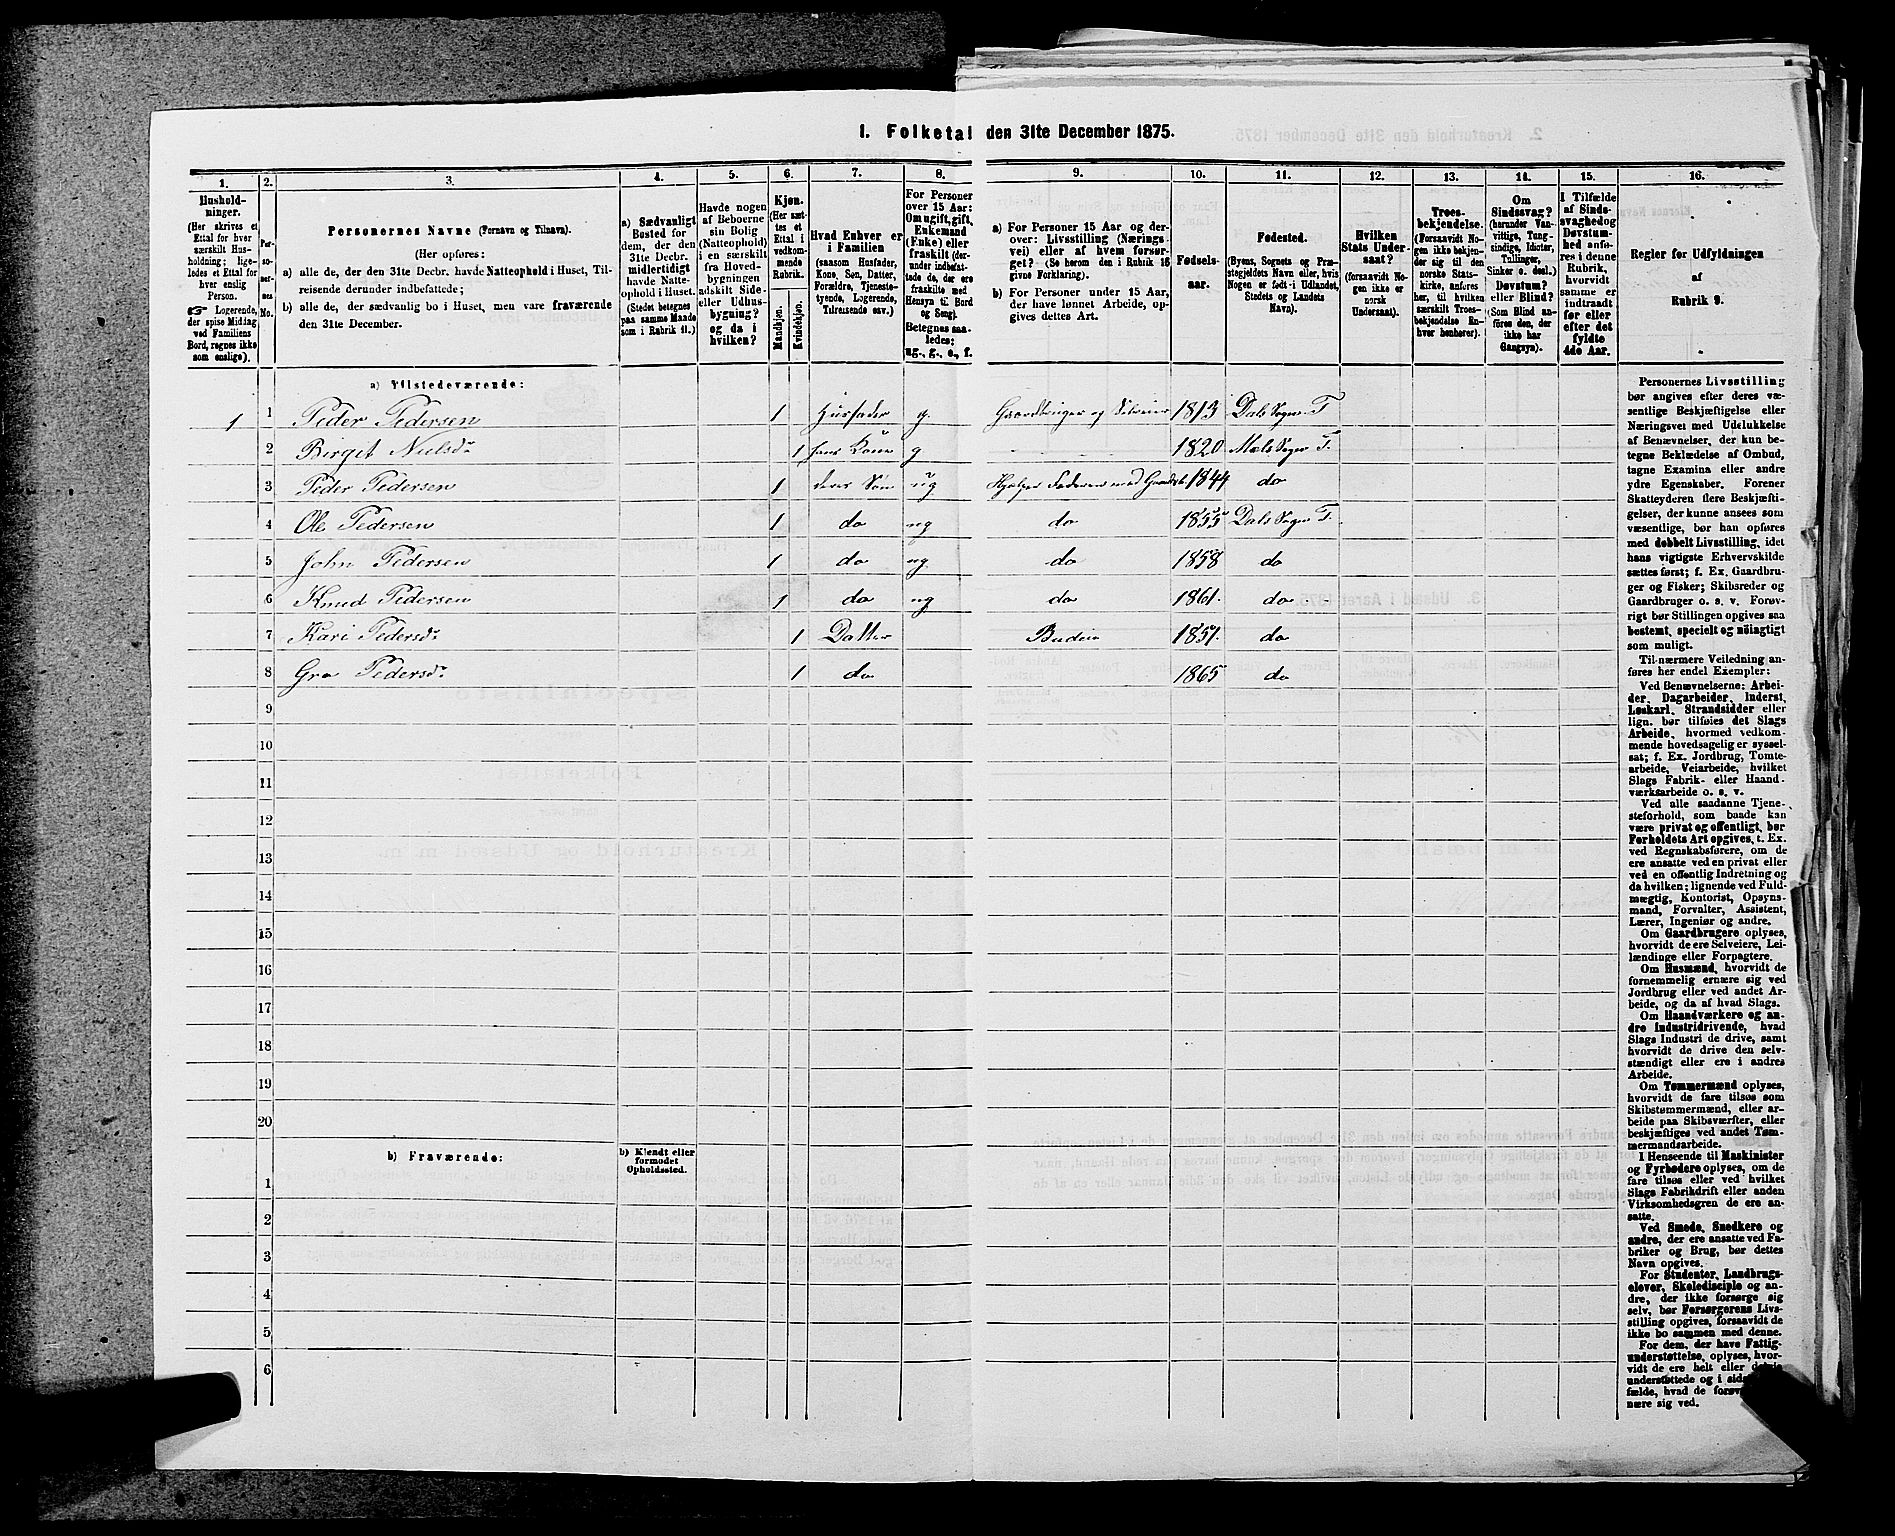 1. Folketal den 31te December 1875.
1. 2. 3. 4. 5. 6. 7. 8. 9. 10. 11. 12. 13. 14. 15. 16.
Hushold-
ninger.
(Her skrives et
Ettal for hver
særskilt Hus-
holdning; lige-
ledes et Ettal for
hver enslig
Person.
☞ Logerende,
der spise Middag
ved Familiens
Bord, regnes ikke
som enslige).
Per-
so-
ner-
nes
No.
Personernes Navne (Fornavn og Tilnavn).
(Her opføres:
a) alle de, der den 31te Decbr. havde Natteophold i Huset, Til-
reisende derunder indbefattede;
b) alle de, der sædvanlig bo i Huset, men vare fraværende
den 31te December.
a) Sædvanligt
Bosted for
dem, der den
31te Decbr.
midlertidigt
havde Natte-
ophold i Huset.
(Stedet betegnes
paa samme Maade
som i Rubrik 11.)
Havde nogen
af Beboerne
sin Bolig
(Natteophold)
i en særskilt
fra Hoved-
bygningen
adskilt Side-
eller Udhus-
bygning?
og da i
hvilken?
Kjøn.
(Her sæt-
tes et
Ettal i
vedkom-
mende
Rubrik.
Mandkjøn.
Kvindekjøn.
Hvad Enhver er
i Familien
(saasom Husfader,
Kone, Søn, Datter,
Forældre, Tjeneste-
tyende, Logerende,
Tilreisende osv.)
For Personer
over 15 Aar:
Om ugift, gift,
Enkemand
(Enke) eller
fraskilt (der-
under indbefat-
tede de, der ere
fraskilte med
Hensyn til Bord
og Seng).
Betegnes saa-
ledes:
ug., g., e., f.
a) For Personer 15 Aar og der-
over: Livsstilling (Nærings-
vei) eller af hvem forsør-
get? (Se herom den i Rubrik 16
givne Forklaring).
b) For Personer under 15 Aar,
der have lønnet Arbeide, op-
gives dettes Art.
Fødsels-
aar.
Fødested.
(Byens, Sognets og Præ-
stegjeldets Navn eller, hvis
Nogen er født i Udlandet,
Stedets og Landets
Navn).
Hvilken
Stats Under-
saat?
(forsaavidt No-
gen ikke er
norsk
Undersaat).
Troes-
bekjendelse.
(Forsaavidt No-
gen ikke bekjen-
der sig til den
norske Stats-
kirke, anføres
her, til hvilken
særskilt Troes-
bekjendelse En-
hver henhører).
Om
Sindssvag?
(herunder Van-
vittige, Tung-
sindige, Idioter,
Tullinger,
Sinker o. desl.)
Døvstum?
eller Blind?
(Som Blind an-
føres den, der
ikke har
Gangsyn).
I Tilfælde
af Sinds-
svaghed og
Døvstum-
hed anfø-
res i denne
Rubrik,
hvorvidt
samme er
indtraadt
før eller
efter det
fyldte
4de Aar.
Regler for Udfyldningen
af
Rubrik 9.
a) Tilstedeværende:
1 1 Peder Pedersen 1 Husfader g. Gaardbruger og Selveier 1813 Dals Sogn T
2 Birgit Nielsdr 1 hans Kone g 1820 Mæls Sogn T.
3 Peder Pedersen 1 deres Søn ug Hjælper Faderen med Gaardsb 1844 do
4 Ole Pedersen 1 do ug do 1855 Dals Sogn T.
5 John Pedersen 1 do ug do 1858 do
6 Knud Pedersen 1 do ug do 1861. do
7 Kari Pedersdr 1 Datter Budeie 1851. do
8 Gro Pedersdr 1 do 1865 do
9
10
11
12
13
14
15
16
17
18
19
20
b) Fraværende:
b) Kjendt eller
formodet
Opholdssted.
1
2
3
4
5
6
Personernes Livsstilling
bør angives efter deres væ-
sentlige Beskjæftigelse eller
Næringsvei med Udelukkelse
af Benævnelser, der kun be-
tegne Beklædelse af Ombud,
tagne Examina eller andre
ydre Egenskaber. Forener
Skatteyderen flere Beskjæfti-
gelser, der kunne ansees som
væsentlige, bør han opføres
med dobbelt Livsstilling, idet
hans vigtigste Erhvervskilde
sættes først; f. Ex. Gaardbru-
ger og Fisker; Skibsreder og
Gaardbruger o. s. v. Forøv-
rigt bør Stillingen opgives saa
bestemt, specielt og nøiagtigt
som muligt.
Til nærmere Veiledning an-
føres her endel Exempler:
Ved Benævnelserne: Arbei-
der, Dagarbeider, Inderst,
Løskarl, Strandsidder eller
lign. bør tilføies det Slags
Arbeide, hvormed vedkom-
mende hovedsagelig er syssel-
sat; f. Ex. Jordbrug, Tomte-
arbeide, Veiarbeide, hvilket
Slags Fabrik- eller Haand-
værksarbeide o. s. v.
Ved alle saadanne Tjene-
steforhold, som baade kan
være privat og offentligt, bør
Forholdets Art opgives, t. Ex.
ved Regnskabsførere, om de
ere ansatte ved en privat eller
ved en offentlig Indretning og
da hvilken; lignende ved Fuld-
mægtig, Kontorist, Opsyns-
mand, Forvalter, Assistent,
Lærer, Ingeniør og andre.
Om Gaardbrugere oplyses,
hvorvidt de ere Selveiere, Lei-
lændinge eller Forpagtere.
Om Husmænd, hvorvidt de
fornemmelig ernære sig ved
Jordbrug eller ved andet Ar-
beide, og da af hvad Slags.
Om Haandværkere og an-
dre Industridrivende, hvad
Slags Industri de drive, samt
hvorvidt de drive den selv-
stændigt eller ere i andres
Arbeide.
Om Tømmermænd oplyses,
hvorvidt de fare tilsøs som
Skibstømmermænd, eller ar-
beide paa Skibsværfter, eller
beskjæftiges ved andet Tøm-
mermandsarbeide.
I Henseende til Maskinister
og Fyrbødere oplyses, om de
fare tilsøs eller ved hvilket
Slags Fabrikdrift eller anden
Virksomhedsgren de ere an-
satte.
Ved Smede, Snedkere og
andre, der ere ansatte ved Fa-
briker og Brug, bør dettes
Navn opgives.
For Studenter, Landbrugs-
elever, Skoledisciple og an-
dre, der ikke forsørge sig
selv, bør Forsørgerens Livs-
stilling opgives, forsaavidt de
ikke bo sammen med denne.
For dem, der have Fattig-
understøttelse, oplyses, hvor-
vidt de ere helt eller
understøttede og i
fælde, hvad de
nære sig ved.